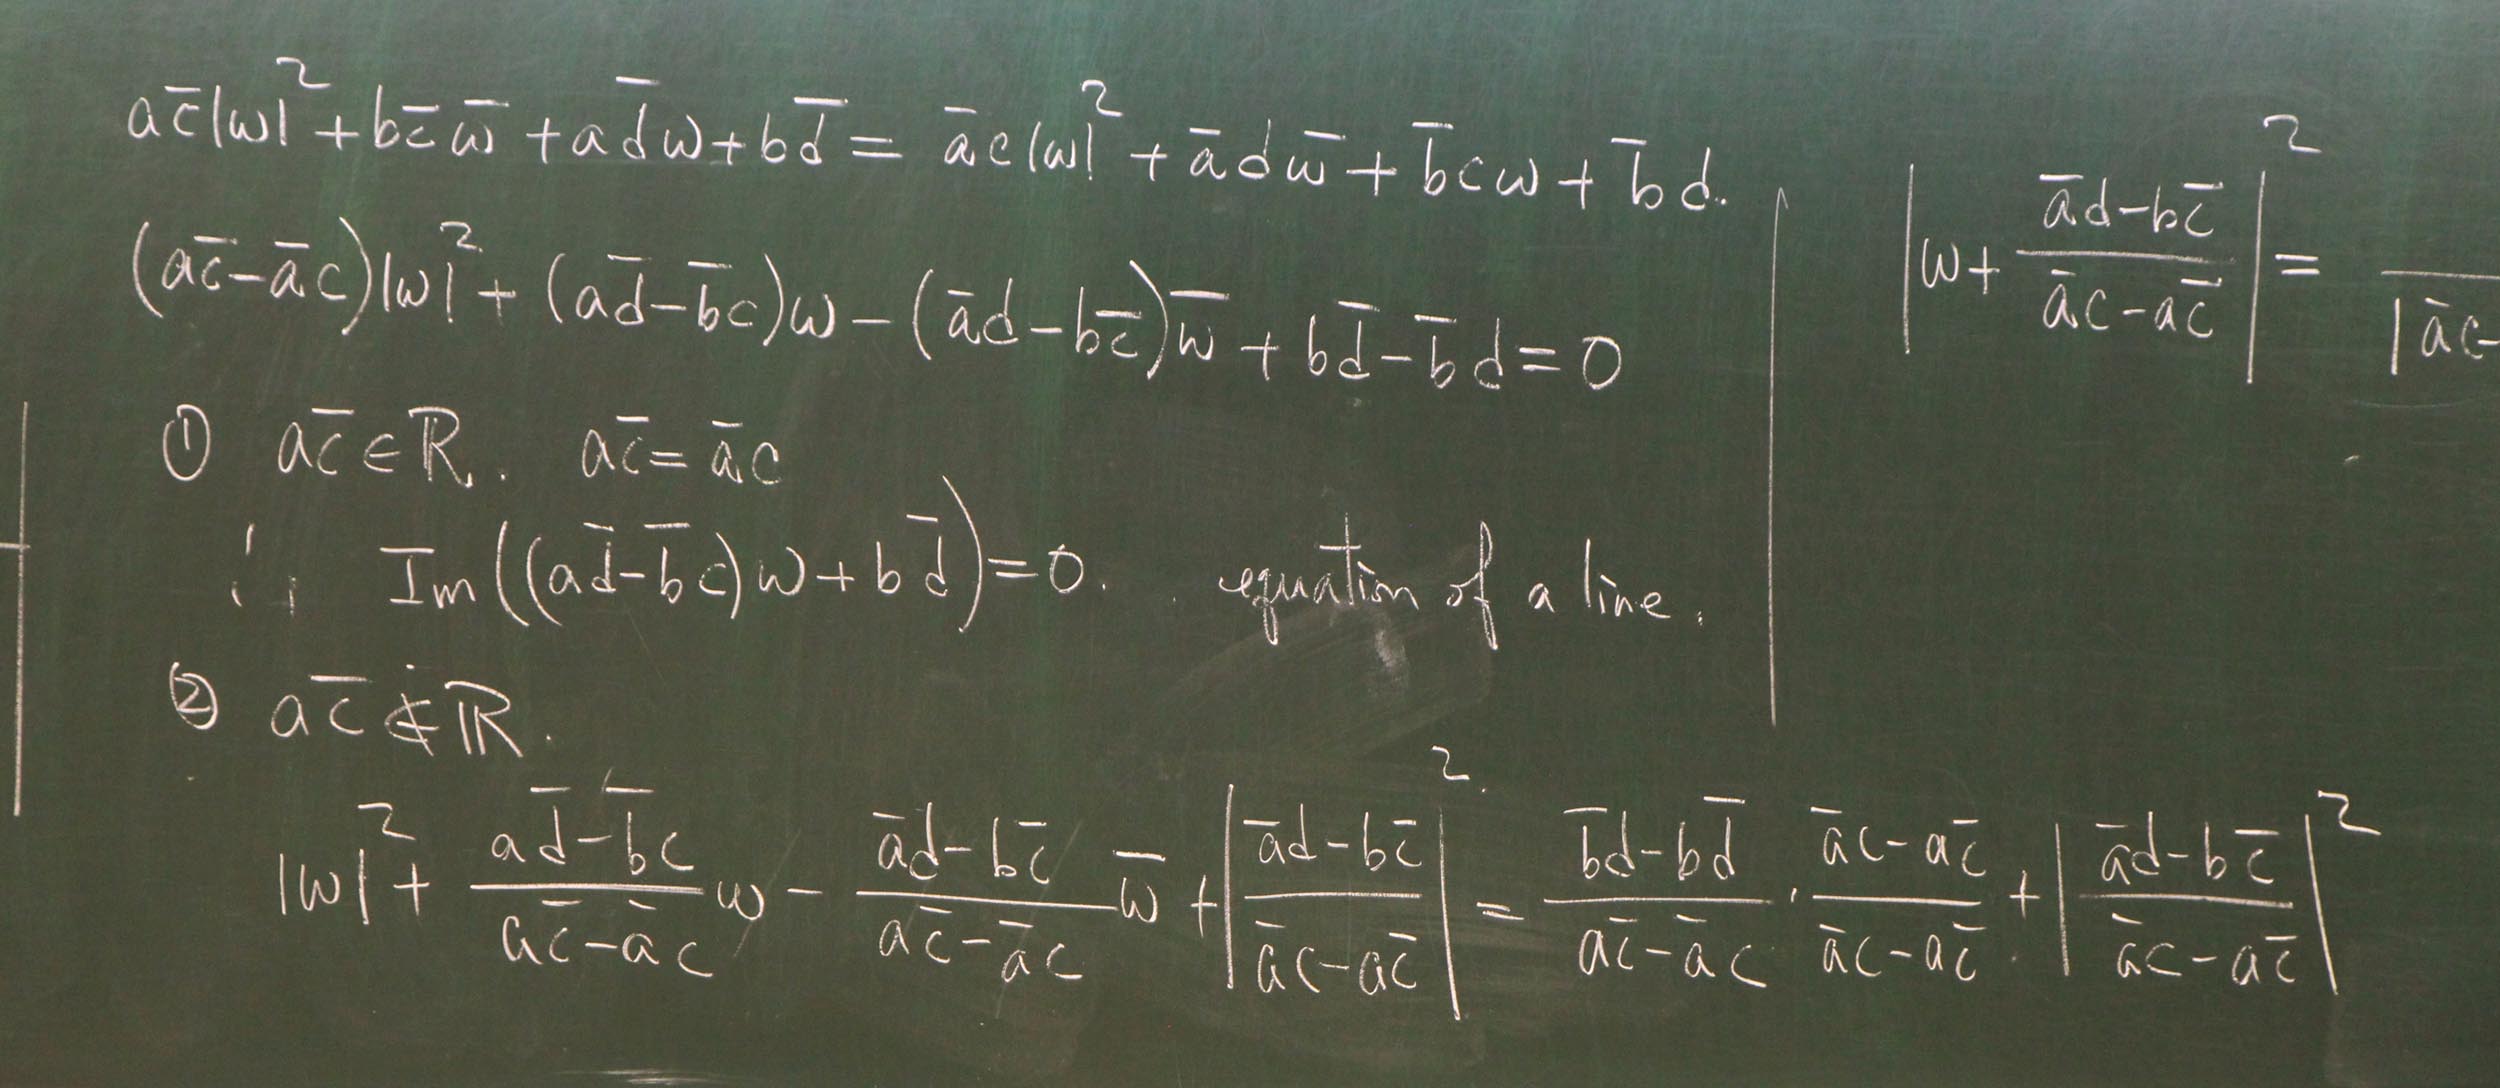 ac̄|w|² + bc̄w̄ + ad̄w + bd̄ = āc|w|² + ādw̄ + b̄cw + b̄d.
(ac̄ - āc)|w|² + (ad̄ - b̄c)w - (ād - bc̄)w̄ + bd̄ - b̄d = 0
① ac̄ ∈ ℝ. ac̄ = āc
∴ Im((ad̄ - b̄c)w + bd̄) = 0. equation of a line.
② ac̄ ∉ ℝ.
|w|² + (ad̄ - b̄c)/(ac̄ - āc) w - (ād - bc̄)/(ac̄ - āc) w̄ + |(ād - bc̄)/(āc - ac̄)|² = (b̄d - bd̄)/(ac̄ - āc) · (āc - ac̄)/(āc - ac̄) + |(ād - bc̄)/(āc - ac̄)|²
|w + (ād - bc̄)/(āc - ac̄)|² =
|āc -